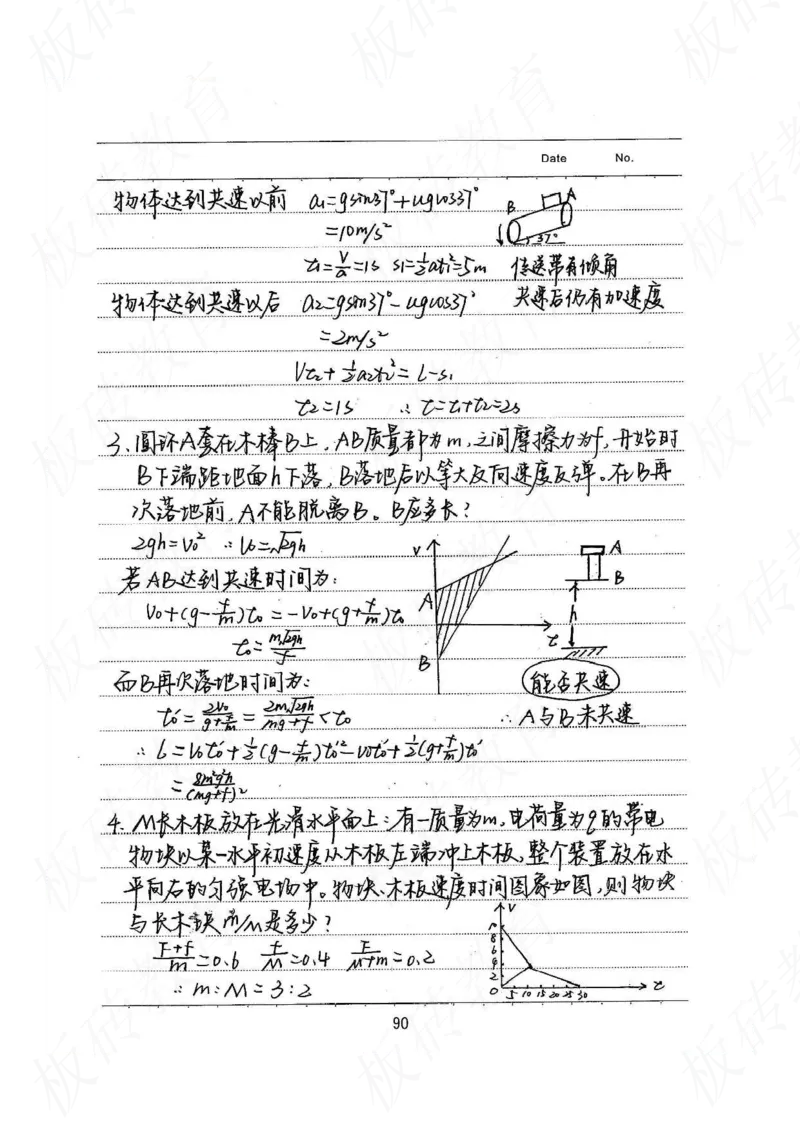 Date No.
物体达到共速以前 a₁=gsin37°+ugcos37°
=10m/s²
B A
37°
t₁=V/a=1s s₁=½at₁²=5m 传送带有倾角
物体达到共速以后 a₂=gsin37°-ugcos37° 共速后仍有加速度
=2m/s²
Vt₂+½a₂t₂²=L-s₁
t₂=1s ∴ t=t₁+t₂=2s
3、圆环A套在木棒B上，AB质量都为m，之间摩擦力为f，开始时
B下端距地面h下落，B落地后以等大反向速度反弹。在B再
次落地前，A不能脱离B。B应多长？
2gh=V₀² ∴V₀=√2gh
若AB达到共速时间为：
V₀+(g-f/m)t₀=-V₀+(g+f/m)t₀
t₀=m√2gh/f
V A B t
A B h
而B再次落地时间为： 能否共速
t₀′=2V₀/(g+f/m)=2m√2gh/(mg+f)<t₀ ∴A与B未共速
∴L=V₀t₀′+½(g-f/m)t₀′²-V₀t₀′+½(g+f/m)t₀′
=8m²g²h/(mg+f)²
4、M长木板放在光滑水平面上：有一质量为m，电荷量为q的带电
物块以某一水平初速度从木板左端冲上木板，整个装置放在水
平向右的匀强电场中。物块、木板速度时间图象如图，则物块
与长木块m/M是多少？
(F+f)/m=0.6 f/M=0.4 F/(M+m)=0.2
∴m:M=3:2
V
10
8
6
4
2
0 5 10 15 20 25 30 t
90
板砖教育
板砖教育
板砖教育